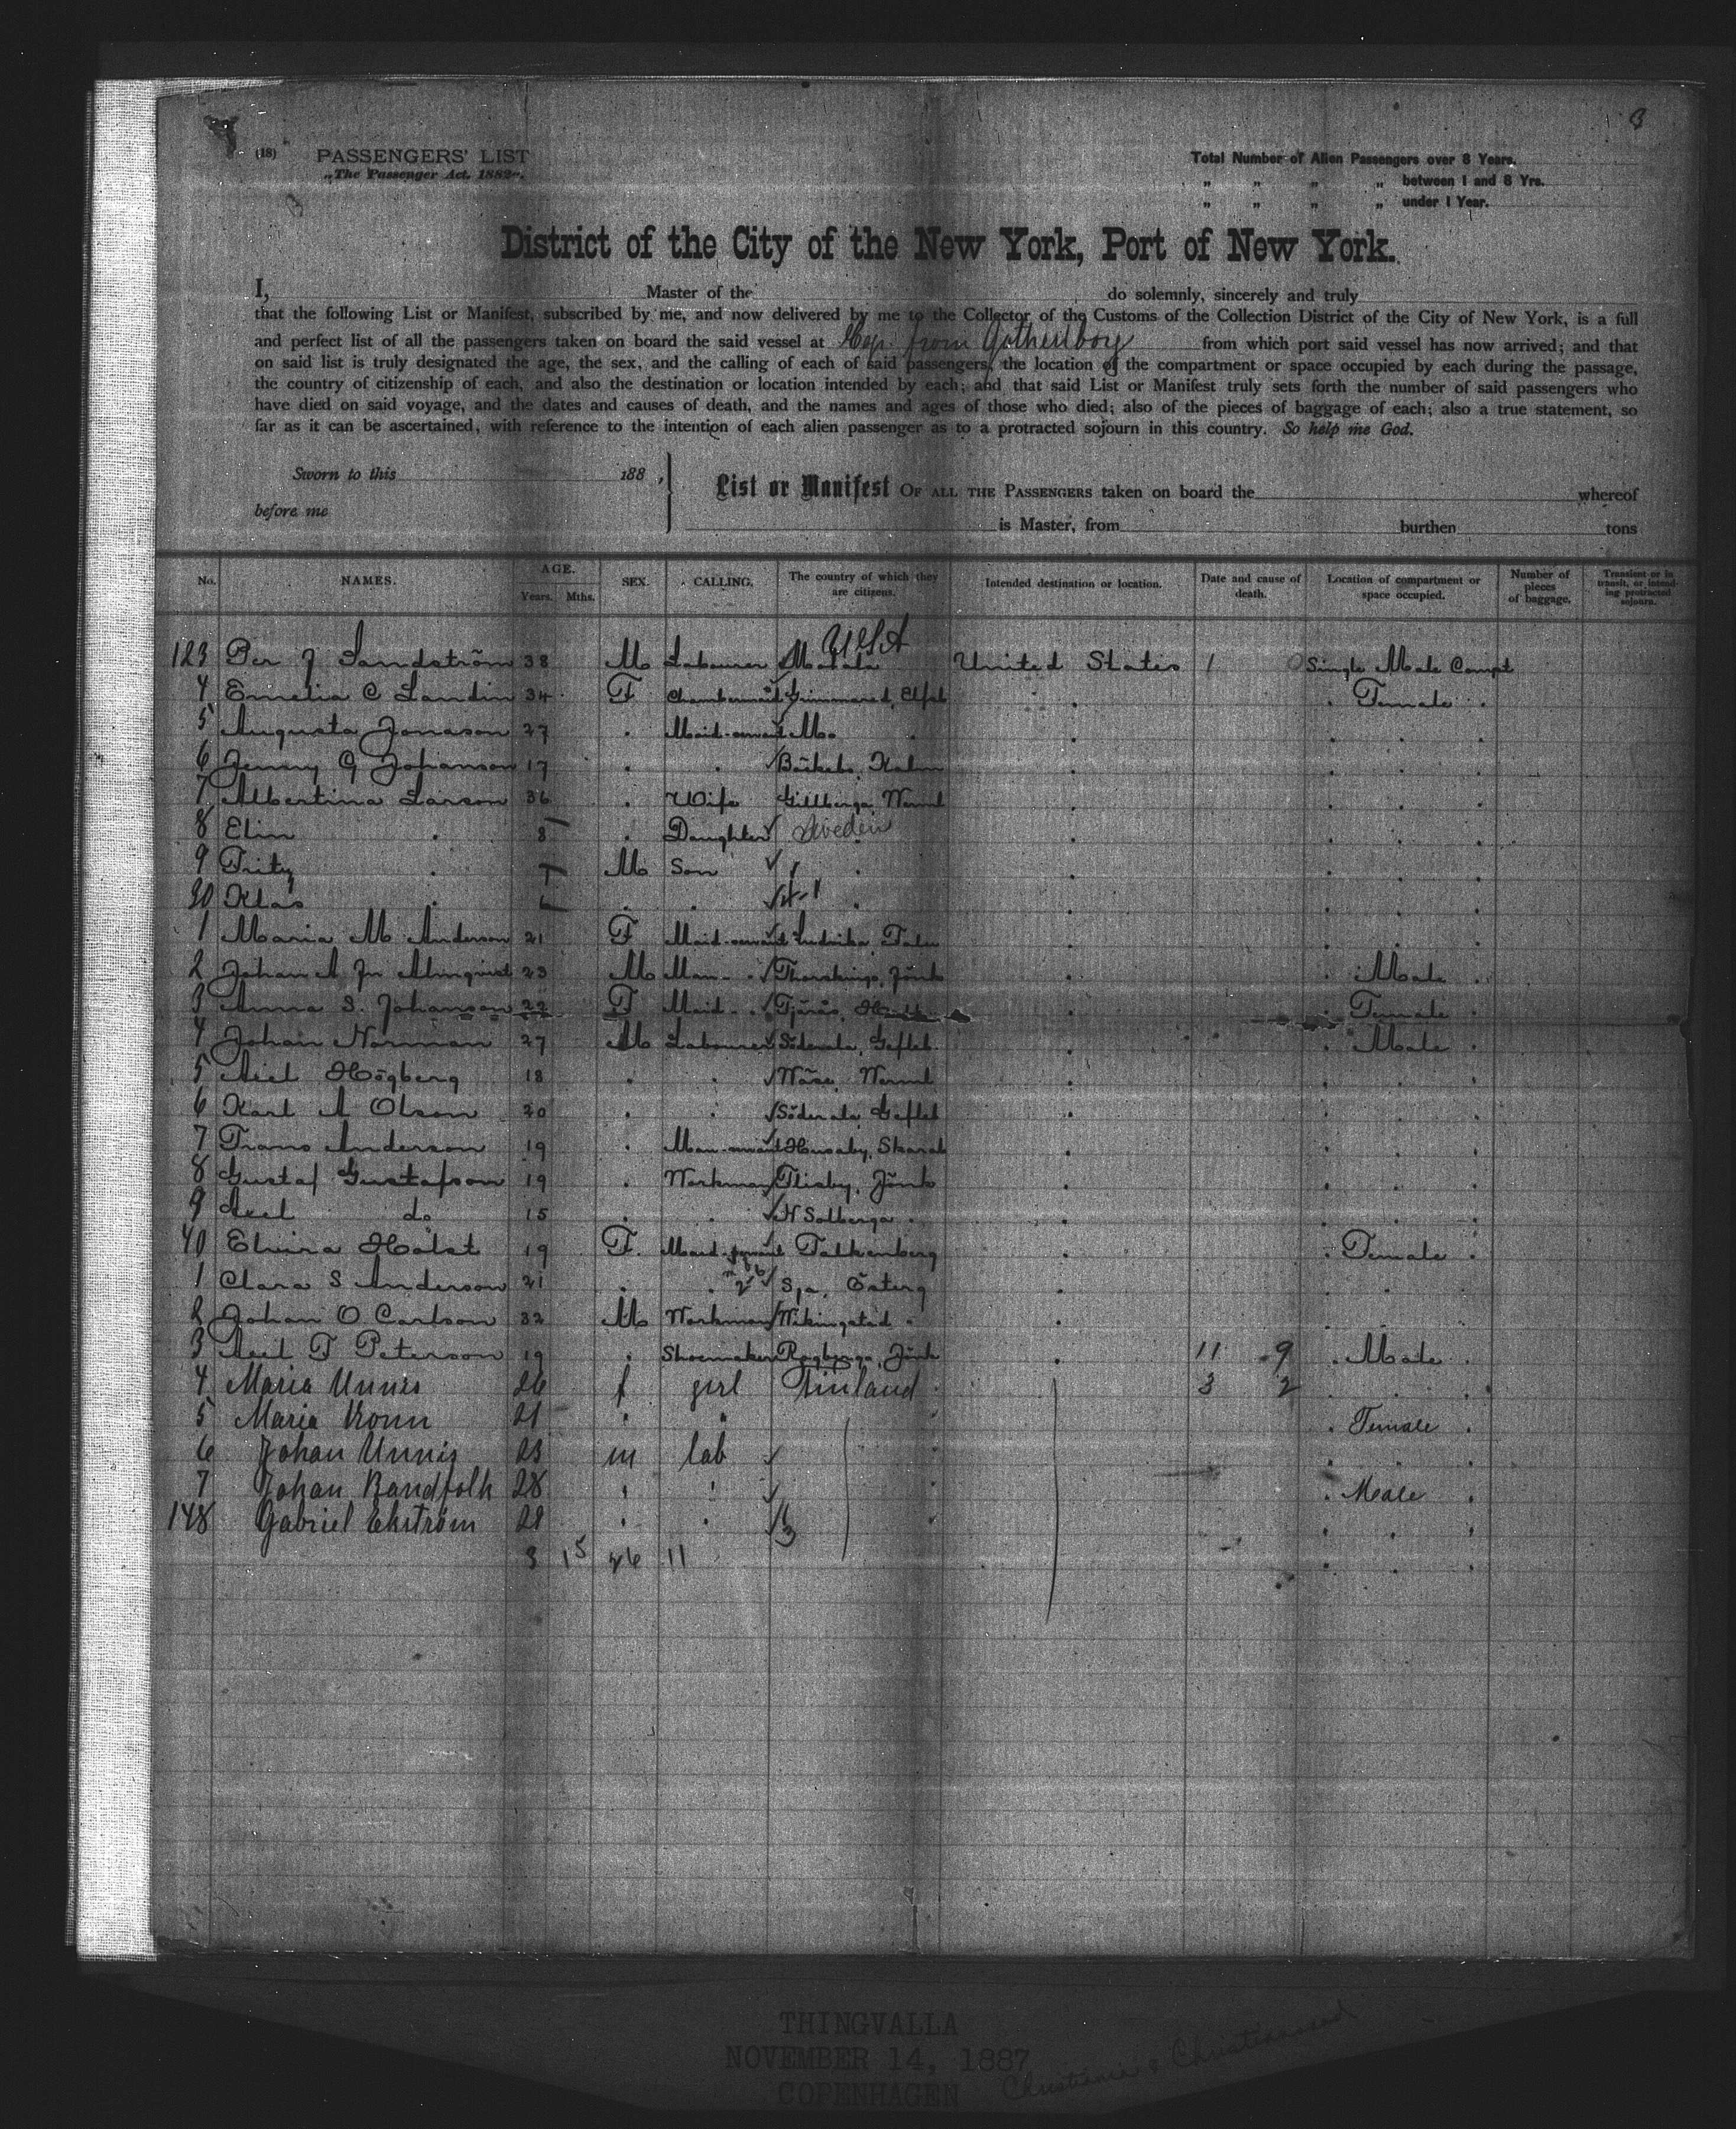 3
(18) PASSENGERS' LIST
„The Passenger Act, 1882“.
Total Number of Alien Passengers over 8 Years.
„ „ „ „ between 1 and 8 Yrs.
„ „ „ „ under 1 Year.
District of the City of the New York, Port of New York.
I, Master of the do solemnly, sincerely and truly
that the following List or Manifest, subscribed by me, and now delivered by me to the Collector of the Customs of the Collection District of the City of New York, is a full
and perfect list of all the passengers taken on board the said vessel at from from which port said vessel has now arrived; and that
on said list is truly designated the age, the sex, and the calling of each of said passengers, the location of the compartment or space occupied by each during the passage,
the country of citizenship of each, and also the destination or location intended by each; and that said List or Manifest truly sets forth the number of said passengers who
have died on said voyage, and the dates and causes of death, and the names and ages of those who died; also of the pieces of baggage of each; also a true statement, so
far as it can be ascertained, with reference to the intention of each alien passenger as to a protracted sojourn in this country. So help me God.
Sworn to this 188 ,
before me
List or Manifest OF ALL THE PASSENGERS taken on board the whereof
is Master, from burthen tons
No. NAMES. AGE. Years. Mths. SEX. CALLING. The country of which they are citizens. Intended destination or location. Date and cause of death. Location of compartment or space occupied. Number of pieces of baggage. Transient or in transit, or intending protracted sojourn.
USA
123 Per J Sandström 38 M Labourer Motala United States 1 0 Single Male Compt
4 Emelia C Landin 34 F Chambermaid Grimmared, Elfsb Female
5 Augusta Jonason 27 Maid-servant
6 Jenny G Johanson 17 Bäckebo, Kalm
7 Albertina Larson 36 Wife Gillberga Werml
8 Elin 8 Daughter Sweden
9 Fritz M Son
30 Klas
1 Maria M Anderson 21 F Maid-servant Ludvika, Falu
2 Johan A Jr Almqvist 23 M Man- Thorskinge, Jönk Male
3 Anna S. Johanson 22 F Maid- Fjärås, Female
4 Johan Norman 27 M Labourer Söderala, Gefleb Male
5 Axel Högberg 18 Wäse, Werml
6 Karl A Olson 20 Söderala, Gefleb
7 Frans Anderson 19 Man-servant Husaby, Skarab
8 Gustaf Gustafson 19 Workman Flisby, Jönk
9 Axel do 15 N Solberga
40 Elvira Holst 19 F. Maid-servant Falkenberg Female
1 Clara S Anderson 21 Österg
2 Johan O Carlson 32 M Workman Wikingstad
3 Axel F Peterson 19 Shoemaker Rogberga, Jönk 11 9 Male
4 Maria Unnis 26 f girl Finland 3 2
5 Maria 21 Female
6 Johan Unnis 23 m lab
7 Johan Randfolk 28 Male
148 Gabriel Ekström 21
3 15 26 11
THINGVALLA
NOVEMBER 14, 1887
COPENHAGEN Christiania & Christiansand